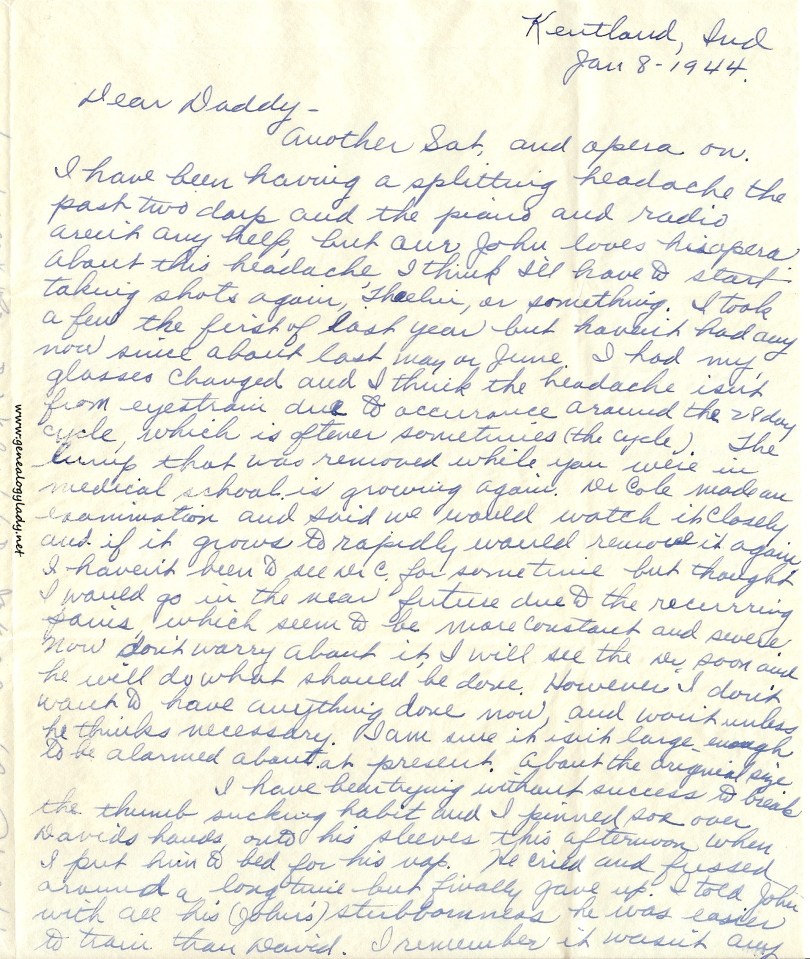 Kentland, Ind
Jan 8-1944.
Dear Daddy-
Another Sat, and opera on.
I have been having a splitting headache the
past two days and the piano and radio
aren't any help, but our John loves his opera
About this headache I think I'll have to start
taking shots again, Theelin, or something. I took
a few the first of last year but haven't had any
now since about last May or June. I had my
glasses changed and I think the headache isn't
from eyestrain due to occurance around the 28 day
cycle, which is oftener sometimes (the cycle). The
lump that was removed while you were in
medical school is growing again. Dr Cole made an
examination and said we would watch it closely
and if it grows to rapidly would remove it again
I haven't been to see Dr C. for sometime but thought
I would go in the near future due to the recurring
pains, which seem to be more constant and severe
Now don't worry about it, I will see the Dr. soon and
he will do what should be done. However I don't
want to have anything done now, and won't unless
he thinks necessary. I am sure it isn't large enough
to be alarmed about at present. About the original size
I have been trying without success to break
the thumb sucking habit and I pinned sox over
Davids hands, onto his sleeves this afternoon when
I put him to bed for his nap. He cried and fussed
around a long time but finally gave up. I told John
with all his (John's) stubbornness he was easier
to train than David. I remember it wasn't any
www.genealogylady.net